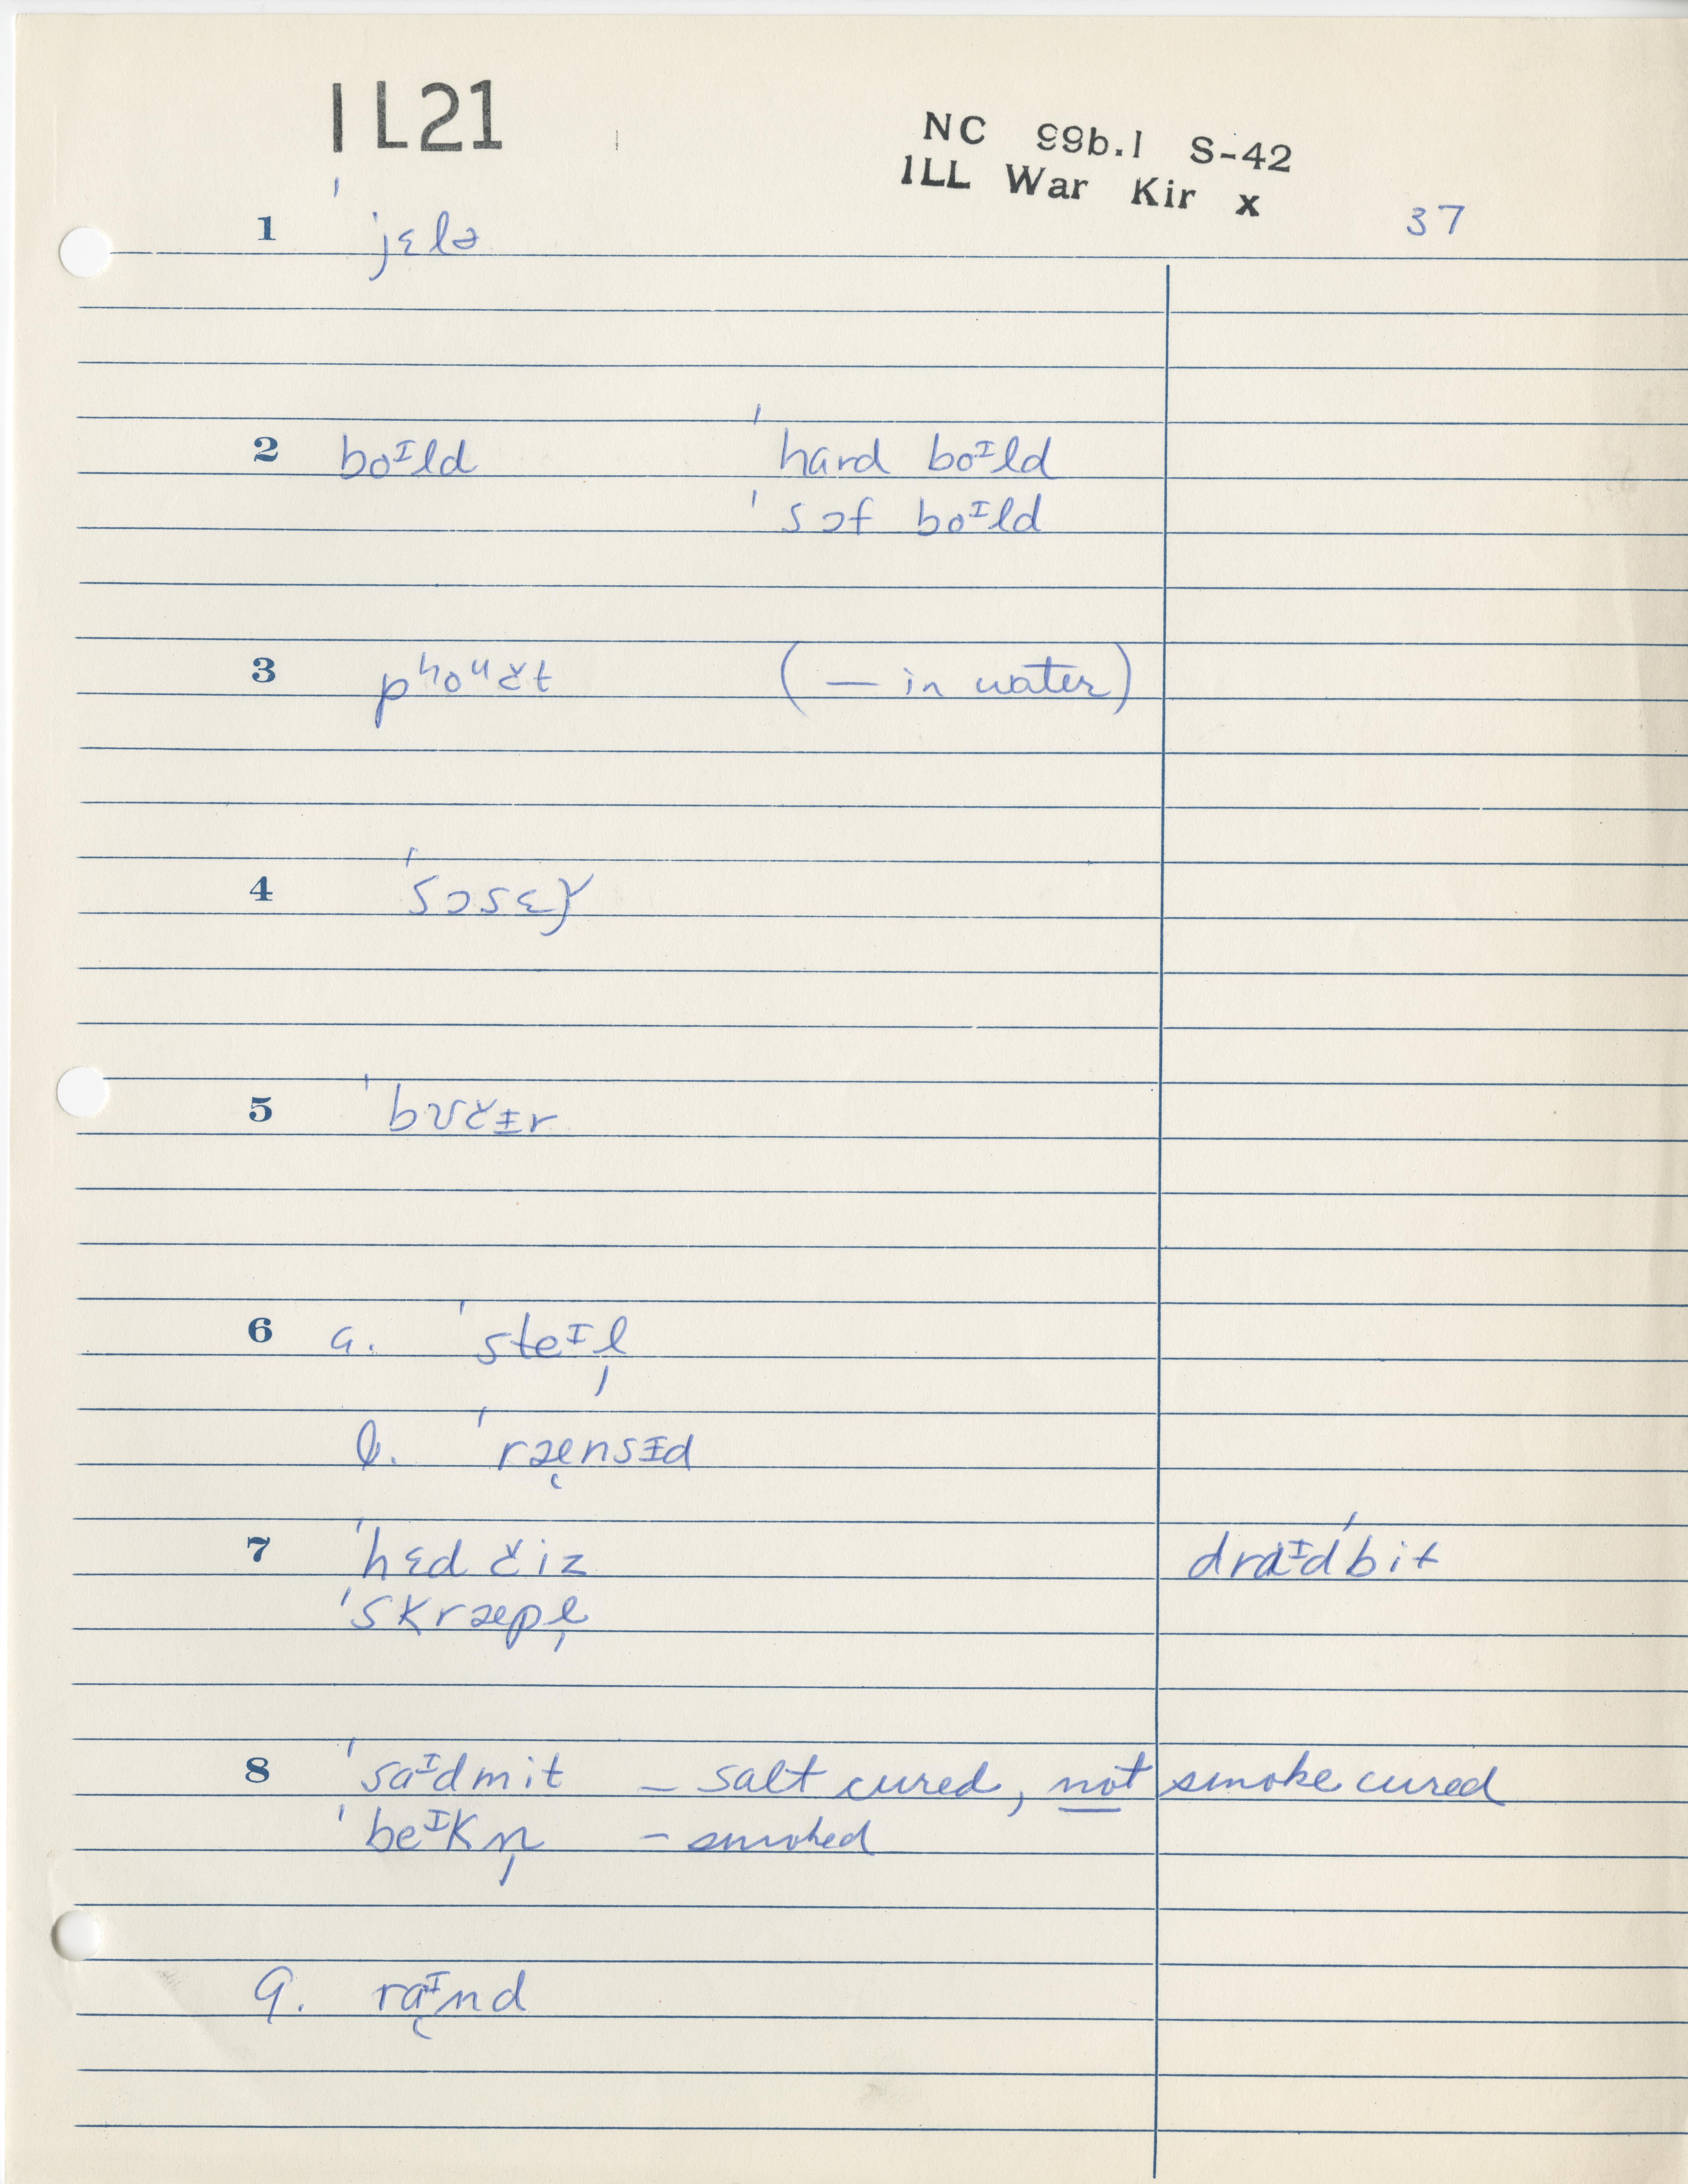 IL21
NC 99b.1 S-42
ILL War Kir x
37
1 ˈjɛlə
2 boᴵld ˈhard boᴵld
ˈsɔf boᴵld
3 pʰoᵘčt (— in water)
4 ˈsɔsɛǰ
5 ˈbʊčɪ̵r
6 a. ˈsteᴵl̩
b. ˈræ̨nsɪ̵d
7 ˈhɛd čiz draᴵdˈbit
ˈskræpl̩
8 ˈsaᴵdmit — salt cured, not smoke cured
ˈbeᴵkn̩ — smoked
9. rą​ᴵnd